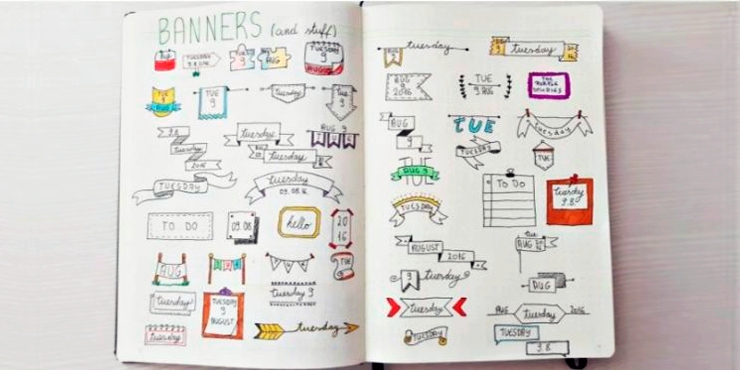 BANNERS (and stuff)
TUESDAY
9.8.2016
9
AUG
TUESDAY
9
AUGUST
TUE
9
tuesday
TUE
9
9.8.
tuesday
2016
tuesday
tuesday
AUG 9
TUESDAY
tuesday
09.08.16
TO DO
09.08
hello
20
16
TUE
AUG
tuesday
TUESDAY
9
AUGUST
tuesday 9
tuesday
tuesday
9
tuesday
9
tuesday
AUG
9
2016
TUE
9 AUG
AUG
9
TUE
tuesday
TUESDAY
TUE
TUE
AUG 9
TO DO
tuesday
9.8.
TUESDAY
AUGUST
2016
tue
AUG
9
tuesday
AUG
tuesday
AUG
tuesday
2016
TUESDAY
TUESDAY
9.8.